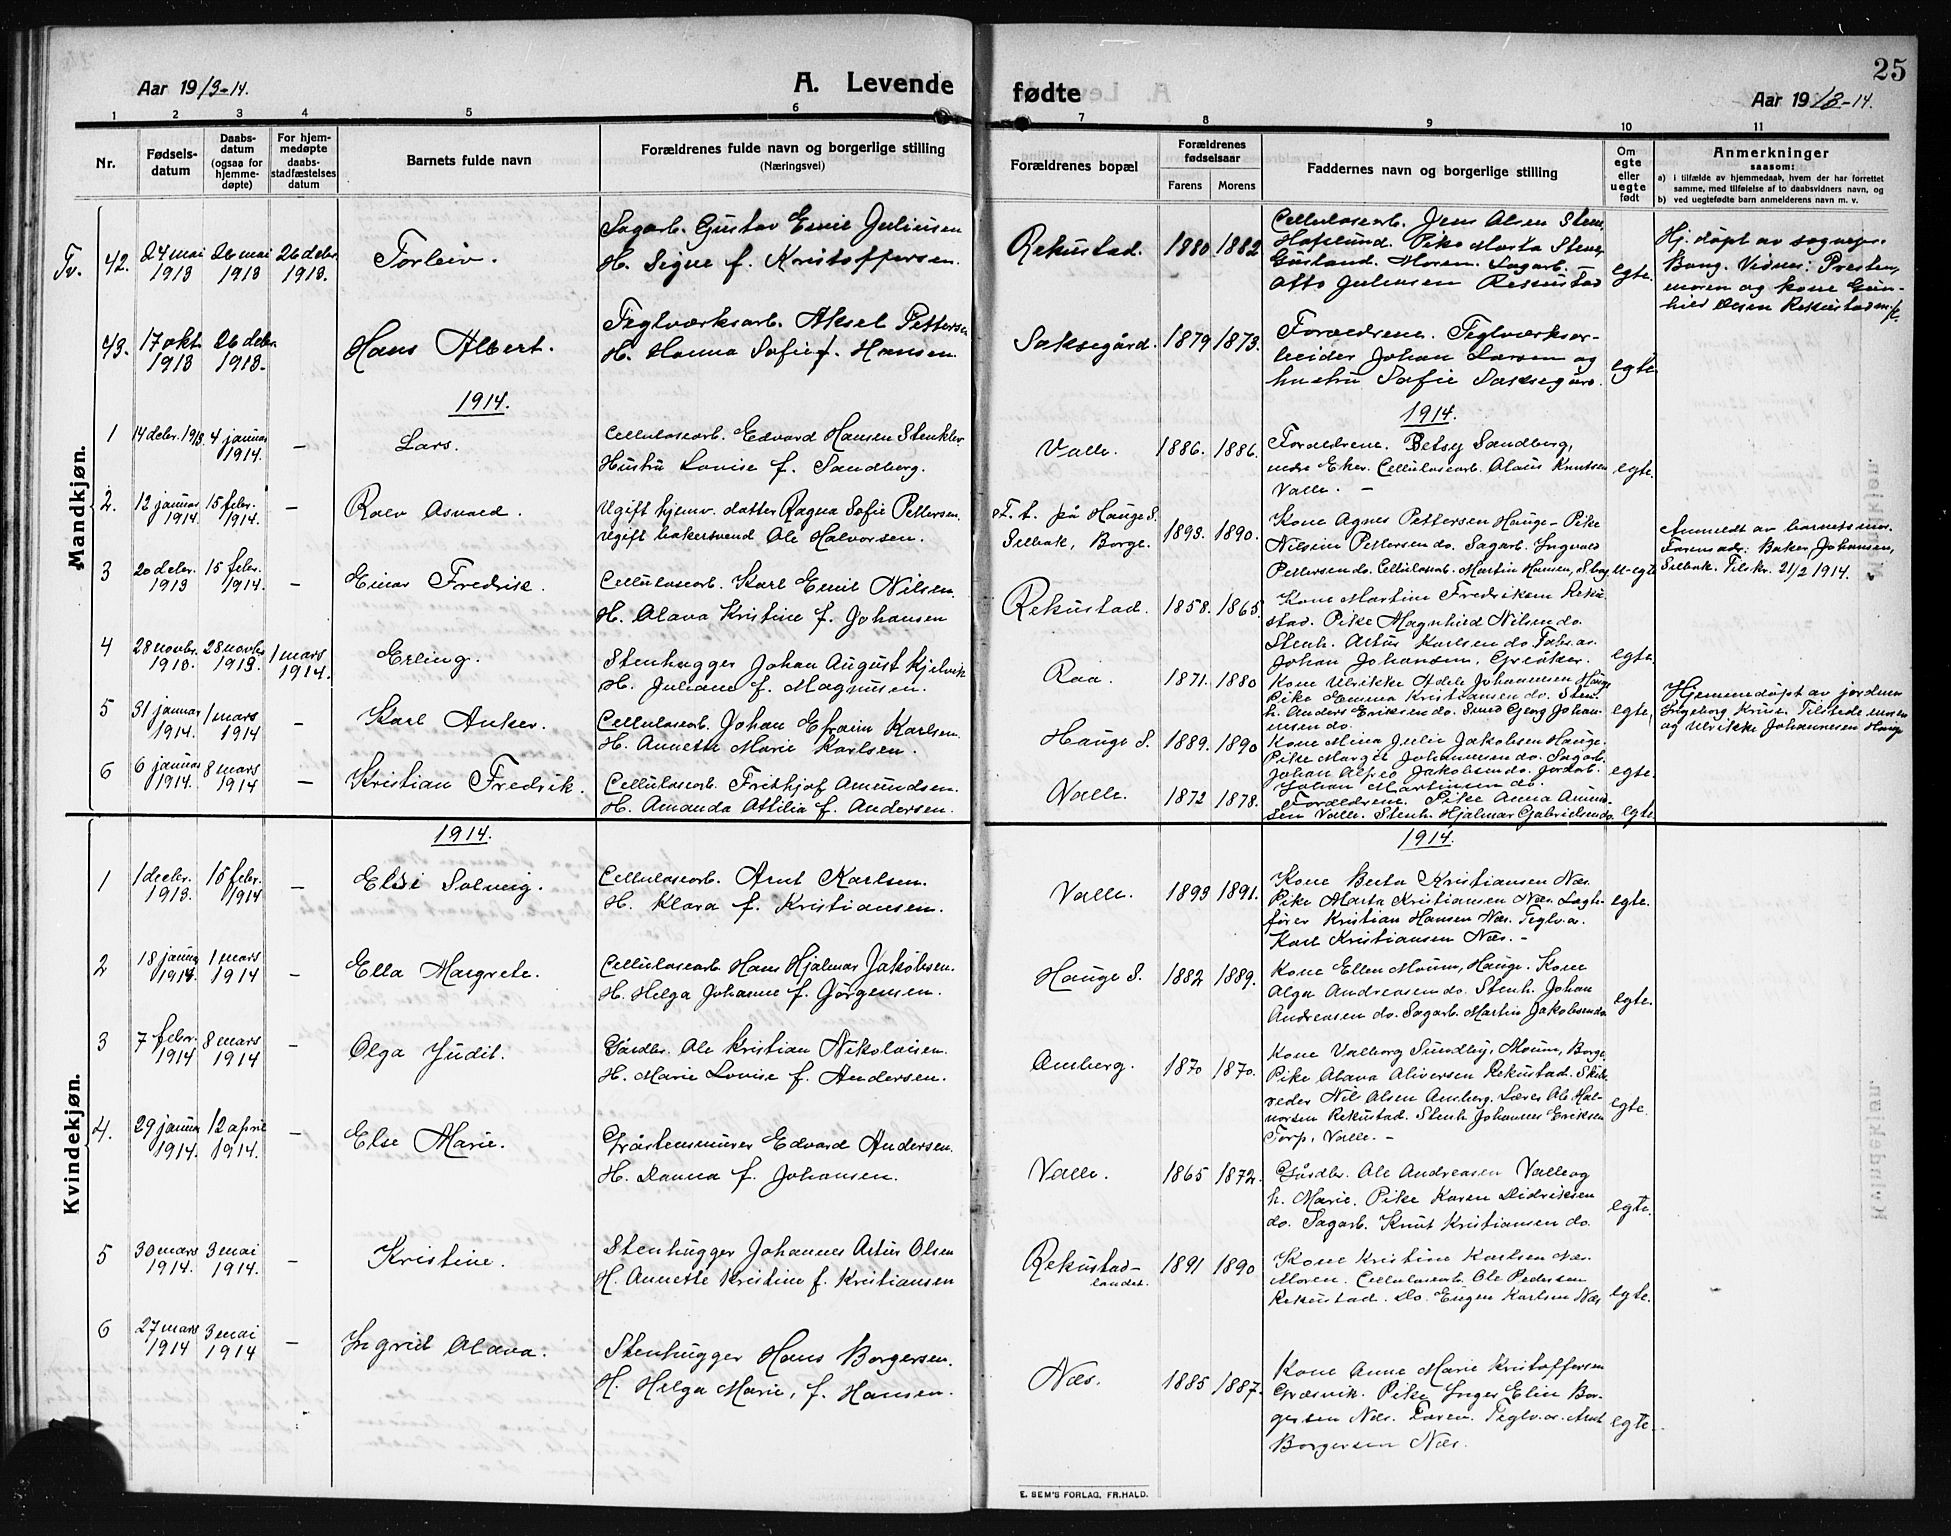 25
Aar 1913-14.
A. Levende
fødte
Aar 1913-14.
1 2 3 4 5 6 7 8 9 10 11
Nr.
Fødsels-
datum
Daabs-
datum
(ogsaa for
hjemme-
døpte)
For hjem-
medøpte
daabs-
stadfæstelses
datum
Barnets fulde navn
Forældrenes fulde navn og borgerlige stilling
(Næringsvei)
Forældrenes bopæl
Forældrenes
fødselsaar
Farens Morens
Faddernes navn og borgerlige stilling
Om
egte
eller
uegte
født
Anmerkninger
saasom:
a) i tilfælde av hjemmedaab, hvem der har forrettet
samme, med tilføielse af to daabsvidners navn, og
b) ved uegtefødte barn anmelderens navn m. v.
Mandkjøn.
Tv. 42. 24 mai 1913 26 mai 1913 26 debr 1913. Torleiv.
Sagarb. Gustav Emil Juliusen
H. Signe f. Kristoffersen.
Rekustad. 1880 1882
Cellulosearb. Jens Olsen Stene,
Hafslund. Pike Marta Stene,
Moren. Sagarb.
Otto Juliusen Rekustad egte.
Hj. døpt av sognepr.
Bang. Vidner: Presten,
moren og kone Gun-
hild Olsen Rekustad
43. 17 okt. 1913 26 debr. 1913. Hans Albert.
Teglværksarb. Aksel Pettersen
H. Hanna Sofie f. Hansen.
Saksegård. 1879 1873.
Forældrene. Teglværksar-
beider Johan Larsen og
hustru Sofie Saksegård. egte.
1914.
1914.
1 14 debr. 1913. 4 januar 1914. — Lars.
Cellulosearb. Edvard Hansen Stenkler
Hustru Lovise f. Sandberg.
Valle. 1886. 1886.
Forældrene. Betsy Sandberg,
nedre Eker. Cellulosearb. Olaus Knutsen
Valle. — egte.
2. 12 januar 1914. 15 febr. 1914. — Rolv Osvald.
Ugift hjemv. datter Ragna Sofie Pettersen.
Ugift bakersvend Ole Halvorsen.
F. t. på Hauge S.
Selbak, Borge. 1893. 1890.
Kone Agnes Pettersen Hauge – Pike
Nilsine Pettersen do. Sagarb. Ingvald
Pettersen do. Cellulosearb. Martin Hansen, u-egte
Anmeldt av barnets mor.
Farens adr: Baker Johansen,
Selbak. Tilskr. 21/2 1914.
3 20 debr. 1913 15 febr. 1914. — Einar Fredrik.
Cellulosearb. Karl Emil Nilsen.
H. Olava Kristine f. Johansen
Rekustad. 1858. 1865
Kone Martine Fredriksen Reku
stad. Pike Magnhild Nilsen do.
Stenh. Artur Karlsen do Fabr. ar.
Johan Johansen, Greåker. egte.
4 28 novbr. 1913. 28 novbr 1913. 1 mars 1914. Erling.
Stenhugger Johan August Kjelvik
H. Juliane f. Magnusen.
Raa. 1871. 1880
Kone Ulrikke Adele Johannesen Hauge
Pike Emma Kristiansen do. Sten-
h. Anders Eriksen do. Smed Georg Johan-
nesen do. egte.
Hjemmedøpt av jordmor
Ingeborg Knut. Tilstede moren
og Ulrikke Johannesen Hauge
5 31 januar 1914. 1 mars 1914 — Karl Anker.
Cellulosearb. Johan Efraim Karlsen.
H. Annette Marie Karlsen.
Hauge S. 1889. 1890
Kone Mina Julie Jakobsen Hauge.
Pike Margit Johannesen do. Sagarb.
Johan Alfred Jakobsen do. Jordarb.
Johan Martinsen do. egte.
6 6 januar 1914. 8 mars 1914 — Kristian Fredrik.
Cellulosearb. Frithjof Amundsen.
H. Amanda Attilia f. Andersen.
Valle. 1872 1878.
Forældrene. Pike Anna Amund-
sen Valle. Stenh. Hjalmar Gabrielsen do. egte.
1914.
1914.
Kvindekjøn.
1 1 decbr. 1913. 15 febr. 1914 — Elsi Solveig.
Cellulosearb. Arnt Karlsen.
H. Klara f. Kristiansen.
Valle. 1893 1891.
Kone Berta Kristiansen Næs.
Pike Marta Kristiansen Næs. Lagte-
fører Kristian Hansen Næs. Teglv.ar.
Karl Kristiansen Næs. – egte.
2 18 januar 1914. 1 mars 1914 — Ella Margrete.
Cellulosearb. Hans Hjalmar Jakobsen.
H. Helga Johanne f. Jørgensen.
Hauge S. 1882 1889.
Kone Ellen Moum, Hauge. Kone
Olga Andreasen do. Stenh. Johan
Andreasen do. Sagarb. Martin Jakobsen do egte.
3 7 febr. 1914 8 mars 1914 — Olga Judit.
Gårdbr. Ole Kristian Nikolaisen.
H. Marie Lovise f. Andersen.
Omberg. 1870 1870.
Kone Valborg Sundby, Moum, Borge.
Pike Olava Oliversen Rekustad.
Nils Olsen Omberg. Lærer Ole Hal-
vorsen Rekustad. Stenh. Johannes Eriksen
Torp, Valle. – egte.
4. 29 januar 1914. 12 april 1914. — Else Marie.
Gråstensmurer Edvard Andersen.
H. Danna f. Johansen.
Valle. 1865 1872.
Gårdbr. Ole Andreasen Valle og
h. Marie. Pike Karen Didriksen
do. Sagarb. Knut Kristiansen do. egte.
5 30 mars 1914. 3 mai 1914. — Kristine.
Stenhugger Johannes Artur Olsen
H. Annette Kristine f. Kristiansen
Rekustad-
landet. 1891 1890
Kone Kristine Karlsen Næs.
Moren. Cellulosearb. Ole Pedersen
Rekustad. Do. Eugen Karlsen Næs egte.
6 27 mars 1914 3 mai 1914 — Ingrid Olava.
Stenhugger Hans Borgersen.
H. Helga Marie, f. Hansen.
Næs. 1885 1887.
Kone Anne Marie Kristoffersen
Græsvik. Pike Inger Elin Bor-
gersen Næs. Faren. Teglv. ar. Arnt
Borgersen Næs. egte.
E. SEM'S FORLAG, FR.HALD.